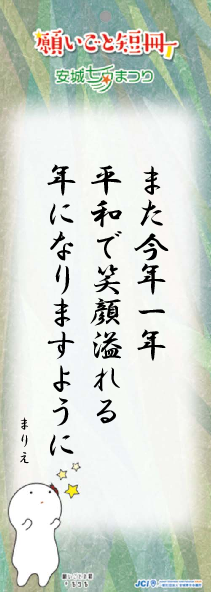 願いごと短冊
安城七夕まつり
また今年一年
平和で笑顔溢れる
年になりますように
まりえ
JCI